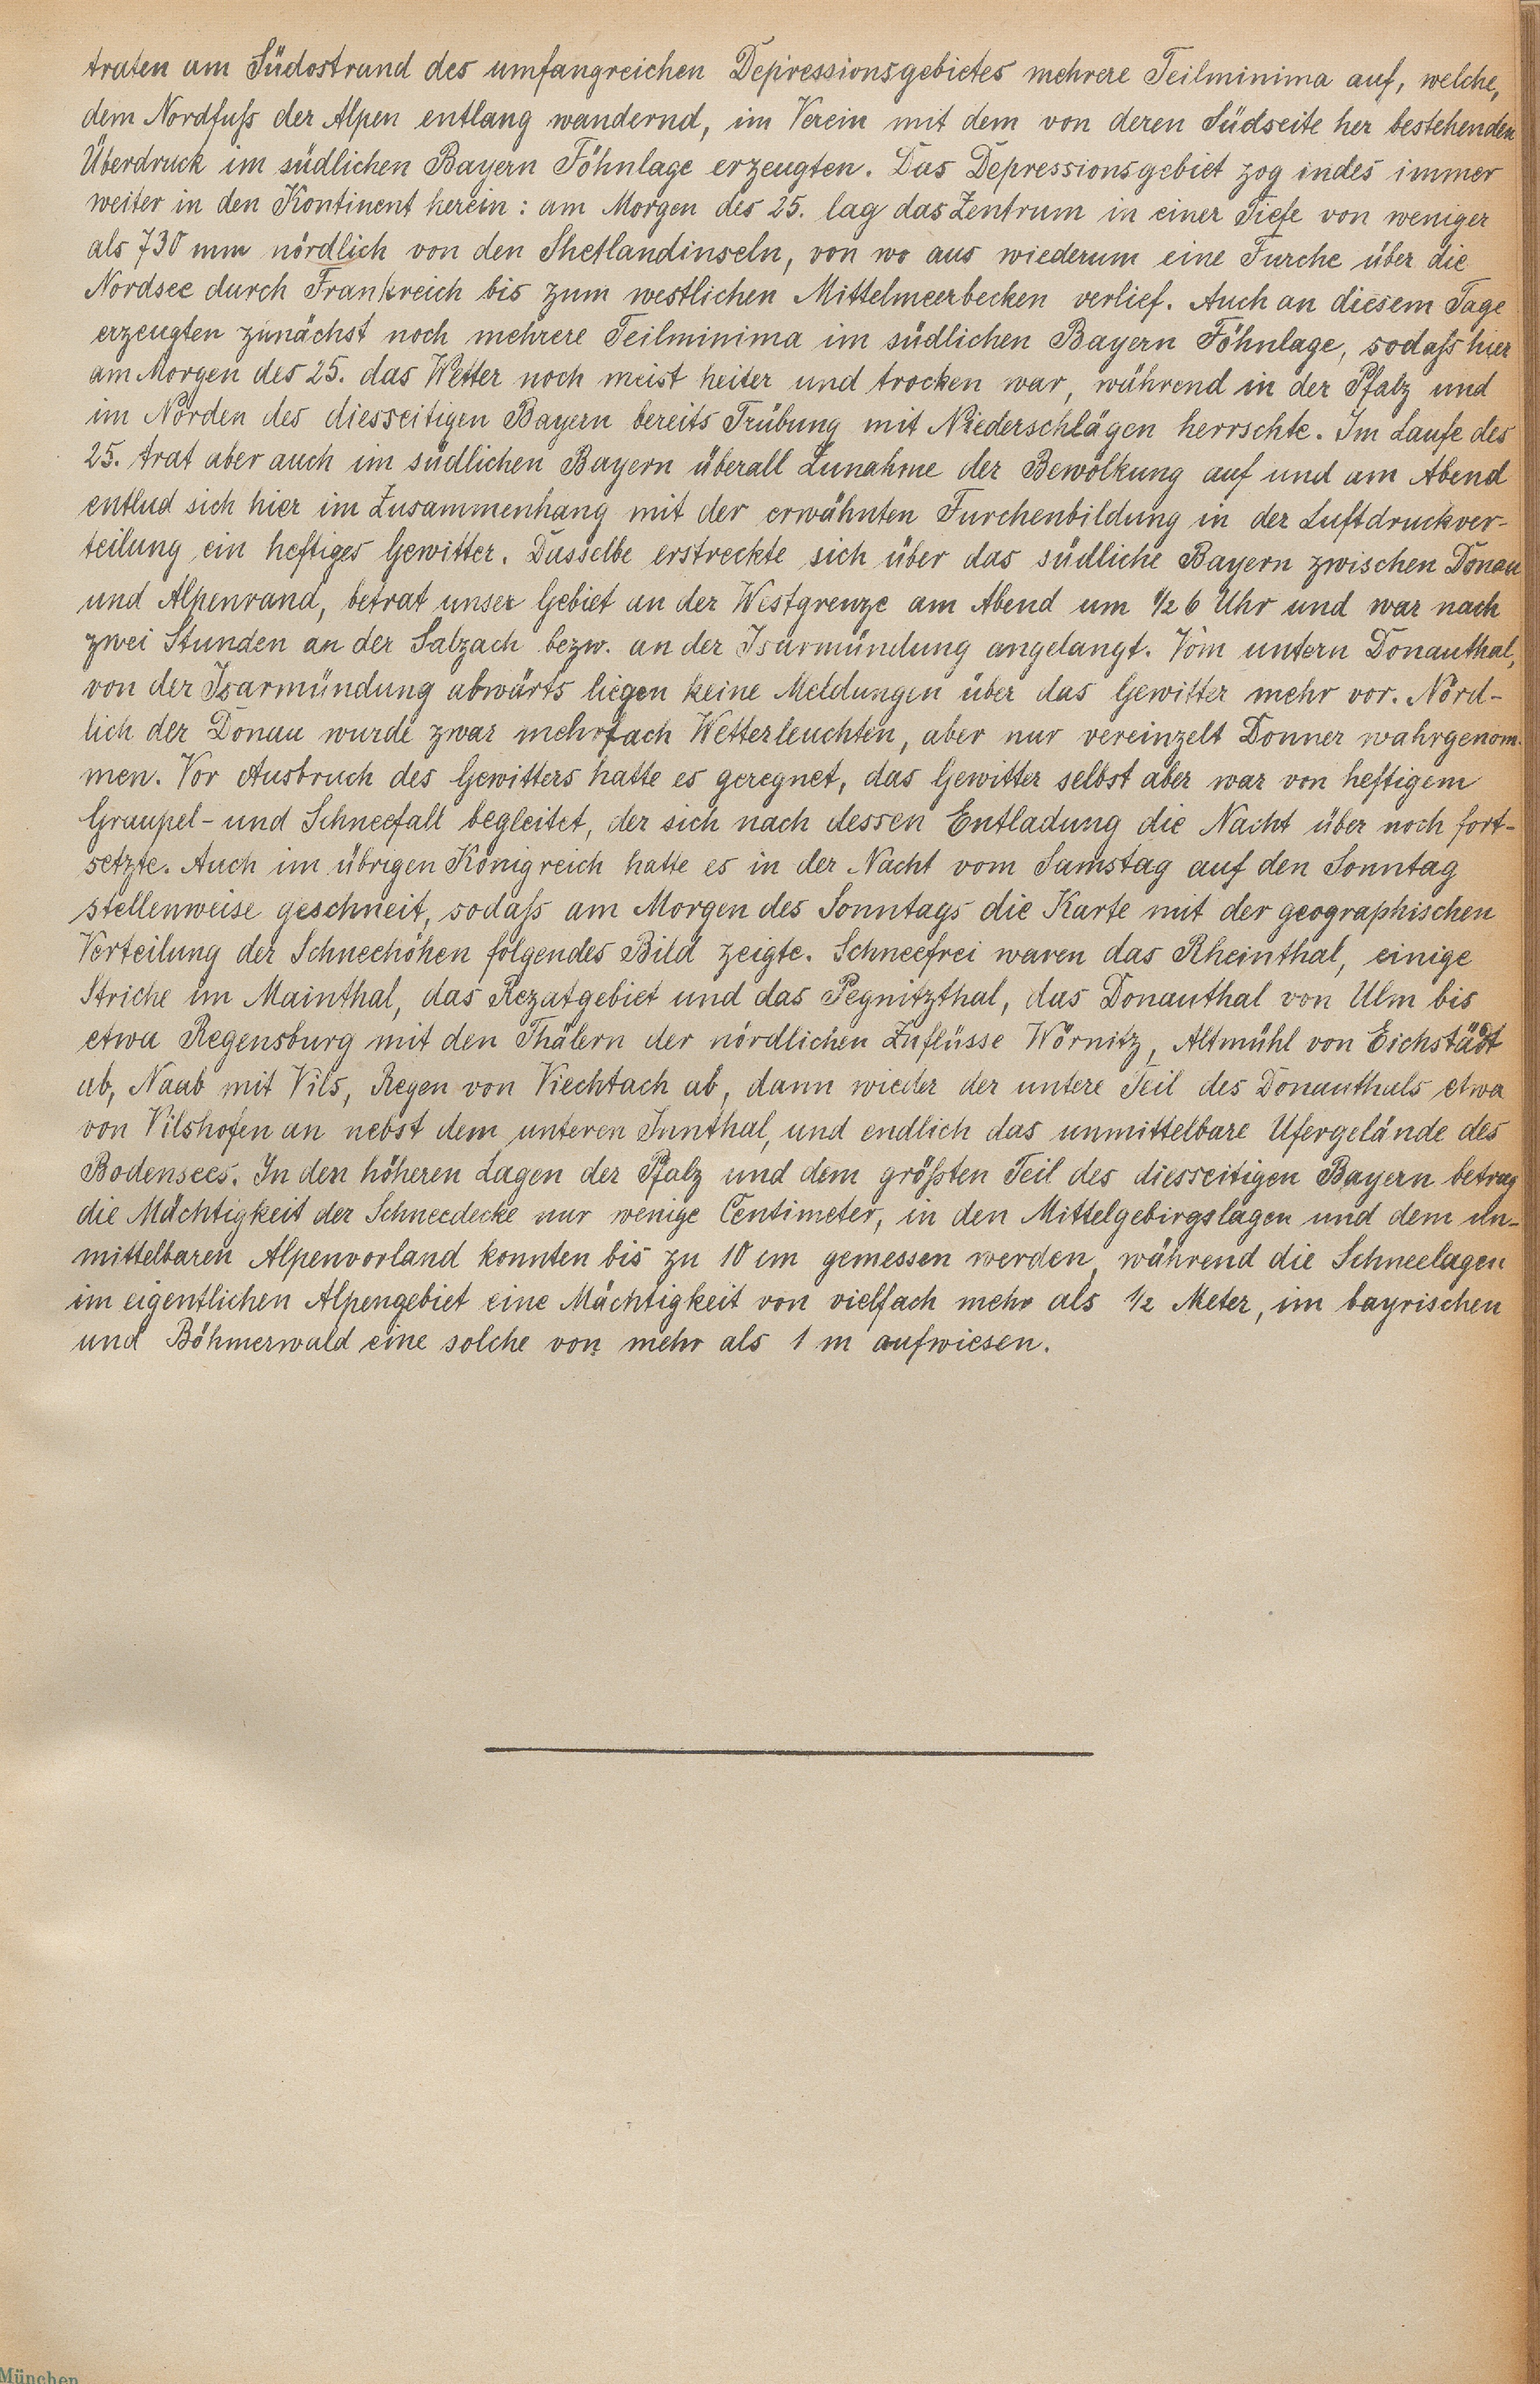 traten am Südostrand des umfangreichen Depressionsgebietes mehrere Teilminima auf, welche,
dem Nordfuß der Alpen entlang wandernd, im Verein mit dem von deren Südseite her bestehenden
Überdruck im südlichen Bayern Föhnlage erzeugten. Das Depressionsgebiet zog indes immer
weiter in den Kontinent herein: am Morgen des 25. lag das Zentrum in einer Tiefe von weniger
als 730 mm nördlich von den Shetlandinseln, von wo aus wiederum eine Furche über die
Nordsee durch Frankreich bis zum westlichen Mittelmeerbecken verlief. Auch an diesem Tage
erzeugten zunächst noch mehrere Teilminima im südlichen Bayern Föhnlage, sodaß hier
am Morgen des 25. das Wetter noch meist heiter und trocken war, während in der Pfalz und
im Norden des diesseitigen Bayern bereits Trübung mit Niederschlägen herrschte. Im Laufe des
25. trat aber auch im südlichen Bayern überall Zunahme der Bewölkung auf und am Abend
entlud sich hier im Zusammenhang mit der erwähnten Furchenbildung in der Luftdruckver-
teilung ein heftiges Gewitter. Dasselbe erstreckte sich über das südliche Bayern zwischen Donau
und Alpenrand, betrat unser Gebiet an der Westgrenze am Abend um ½ 6 Uhr und war nach
zwei Stunden an der Salzach bezw. an der Isarmündung angelangt. Vom untern Donauthal,
von der Isarmündung abwärts liegen keine Meldungen über das Gewitter mehr vor. Nörd-
lich der Donau wurde zwar mehrfach Wetterleuchten, aber nur vereinzelt Donner wahrgenom-
men. Vor Ausbruch des Gewitters hatte es geregnet, das Gewitter selbst aber war von heftigem
Graupel- und Schneefall begleitet, der sich nach dessen Entladung die Nacht über noch fort-
setzte. Auch im übrigen Königreich hatte es in der Nacht vom Samstag auf den Sonntag
stellenweise geschneit, sodaß am Morgen des Sonntags die Karte mit der geographischen
Verteilung der Schneehöhen folgendes Bild zeigte. Schneefrei waren das Rheinthal, einige
Striche im Mainthal, das Rezatgebiet und das Pegnitzthal, das Donauthal von Ulm bis
etwa Regensburg mit den Thälern der nördlichen Zuflüsse Wörnitz, Altmühl von Eichstädt
ab, Naab mit Vils, Regen von Viechtach ab, dann wieder der untere Teil des Donauthals etwa
von Vilshofen an nebst dem unteren Innthal, und endlich das unmittelbare Ufergelände des
Bodensees. In den höheren Lagen der Pfalz und dem größten Teil des diesseitigen Bayern betrug
die Mächtigkeit der Schneedecke nur wenige Centimeter, in den Mittelgebirgslagen und dem un-
mittelbaren Alpenvorland konnten bis zu 10 cm gemessen werden, während die Schneelagen
im eigentlichen Alpengebiet eine Mächtigkeit von vielfach mehr als ½ Meter, im bayrischen
und Böhmerwald eine solche von mehr als 1 m aufwiesen.
München